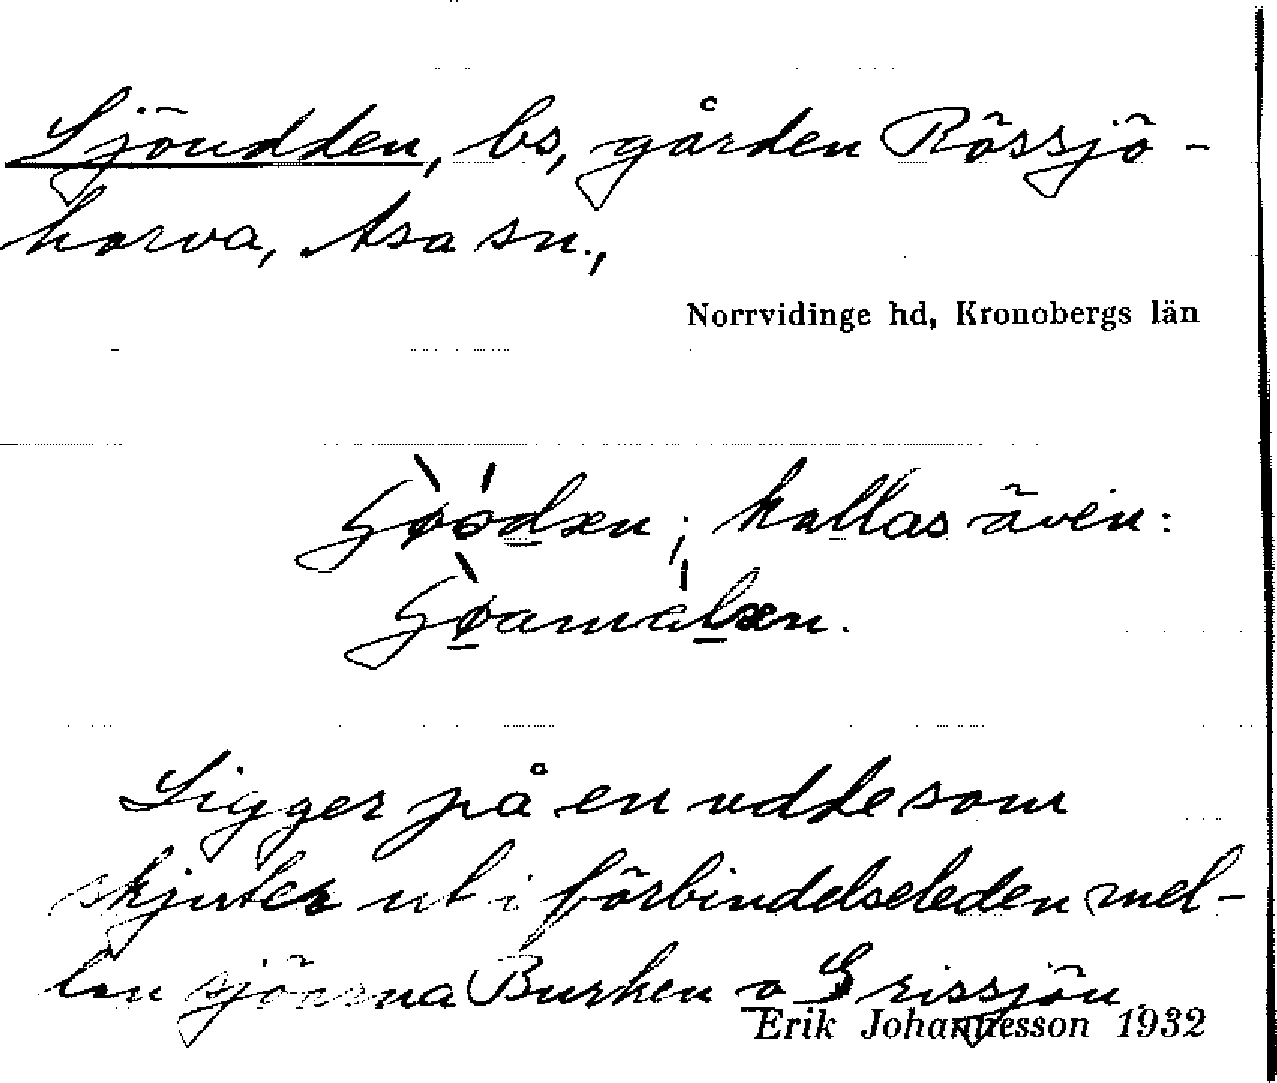 Sjöudden, bs, gården Rössjö-
horva, Asa sn.,
Norrvidinge hd, Kronobergs län
; kallas även:
Ligger på en udde som
skjuter ut i förbindelseleden mel-
lan sjöarna Burken o Grissjön.
Erik Johannesson 1932